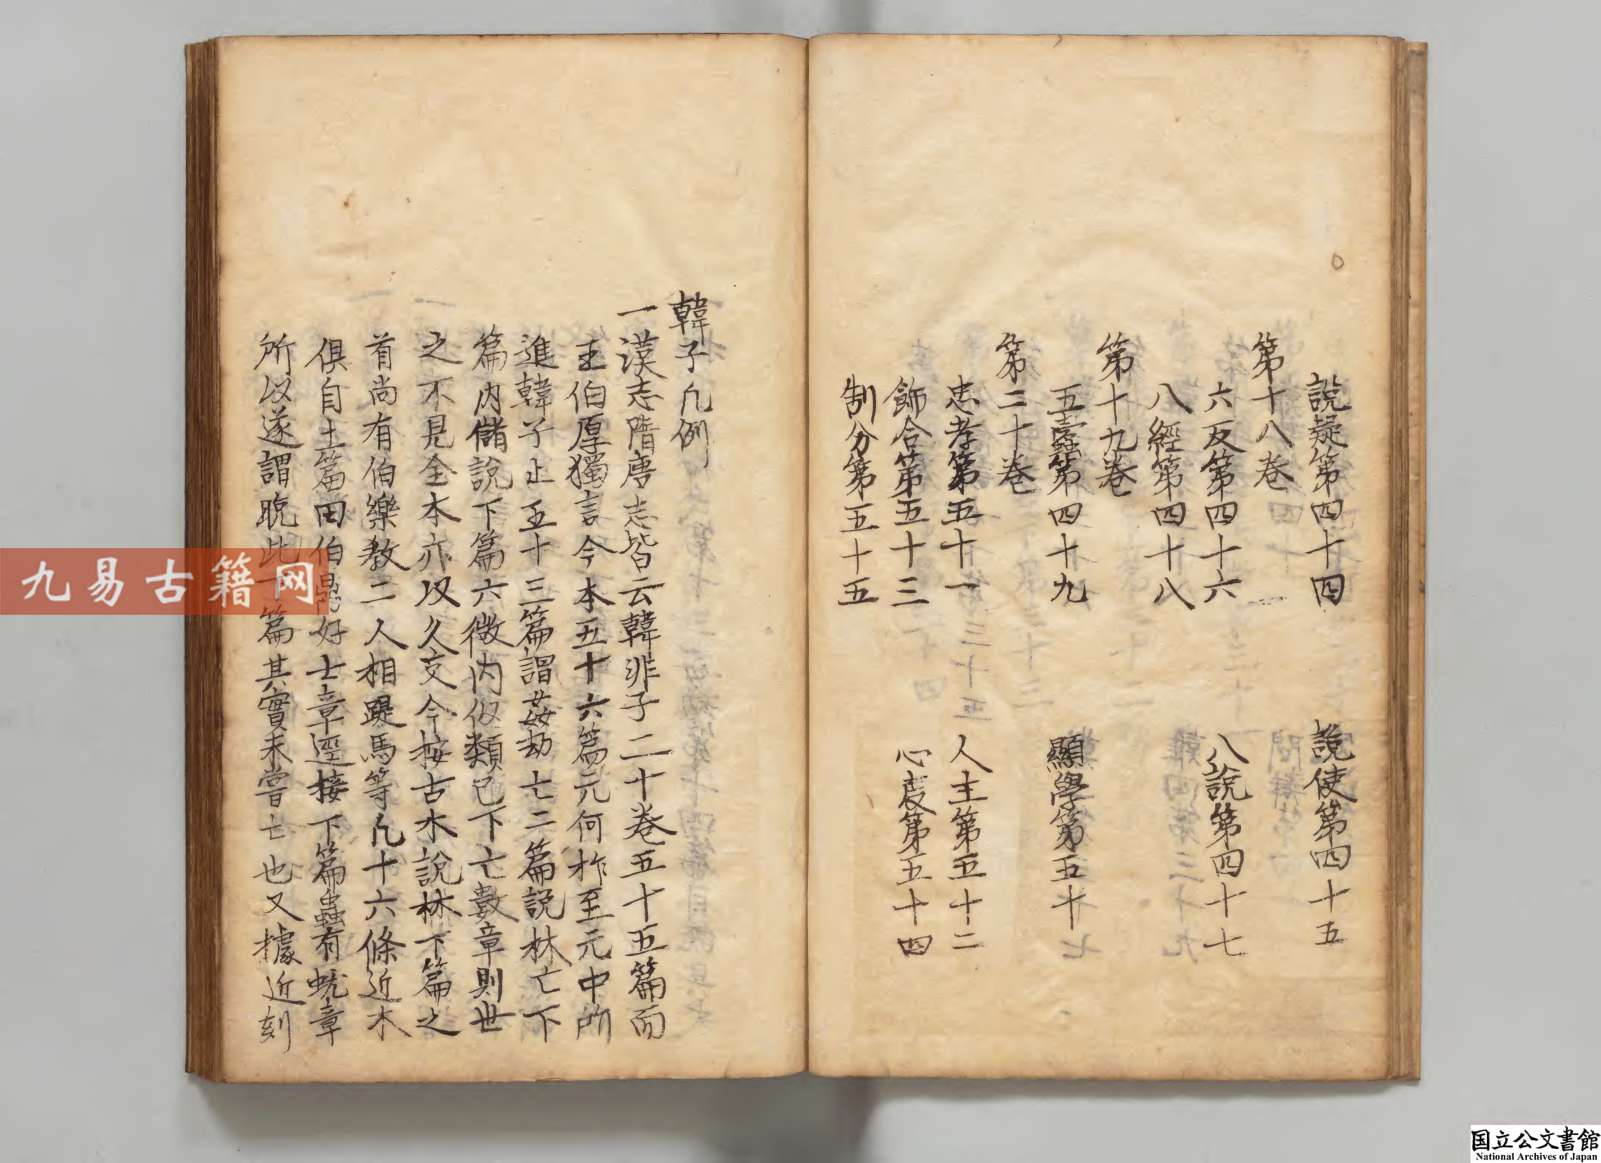 說疑第四十四　說使第四十五
第十八卷
六反第四十六　八說第四十七
八經第四十八
第十九卷
五蠹第四十九　顯學第五十
第二十卷
忠孝第五十一　人主第五十二
飾合第五十三　心度第五十四
制分第五十五
韓子凡例
一漢志隋唐志皆云韓非子二十卷五十五篇而
王伯厚獨言今本五十六篇元何柞至元中所
進韓子止五十三篇謂姦劫亡二篇說林亡下
篇內儲說下篇六微內似類已下亡數章則世
之不見全本亦以久矣今按古木說林下篇之
首尚有伯樂教二人相踶馬等凡十六條近木
俱自土篇田伯鼎好士章逕接下篇蟲有蚘章
所以遂謂脫此一篇其實未嘗亡也又據近刻
九易古籍网
国立公文書館
National Archives of Japan